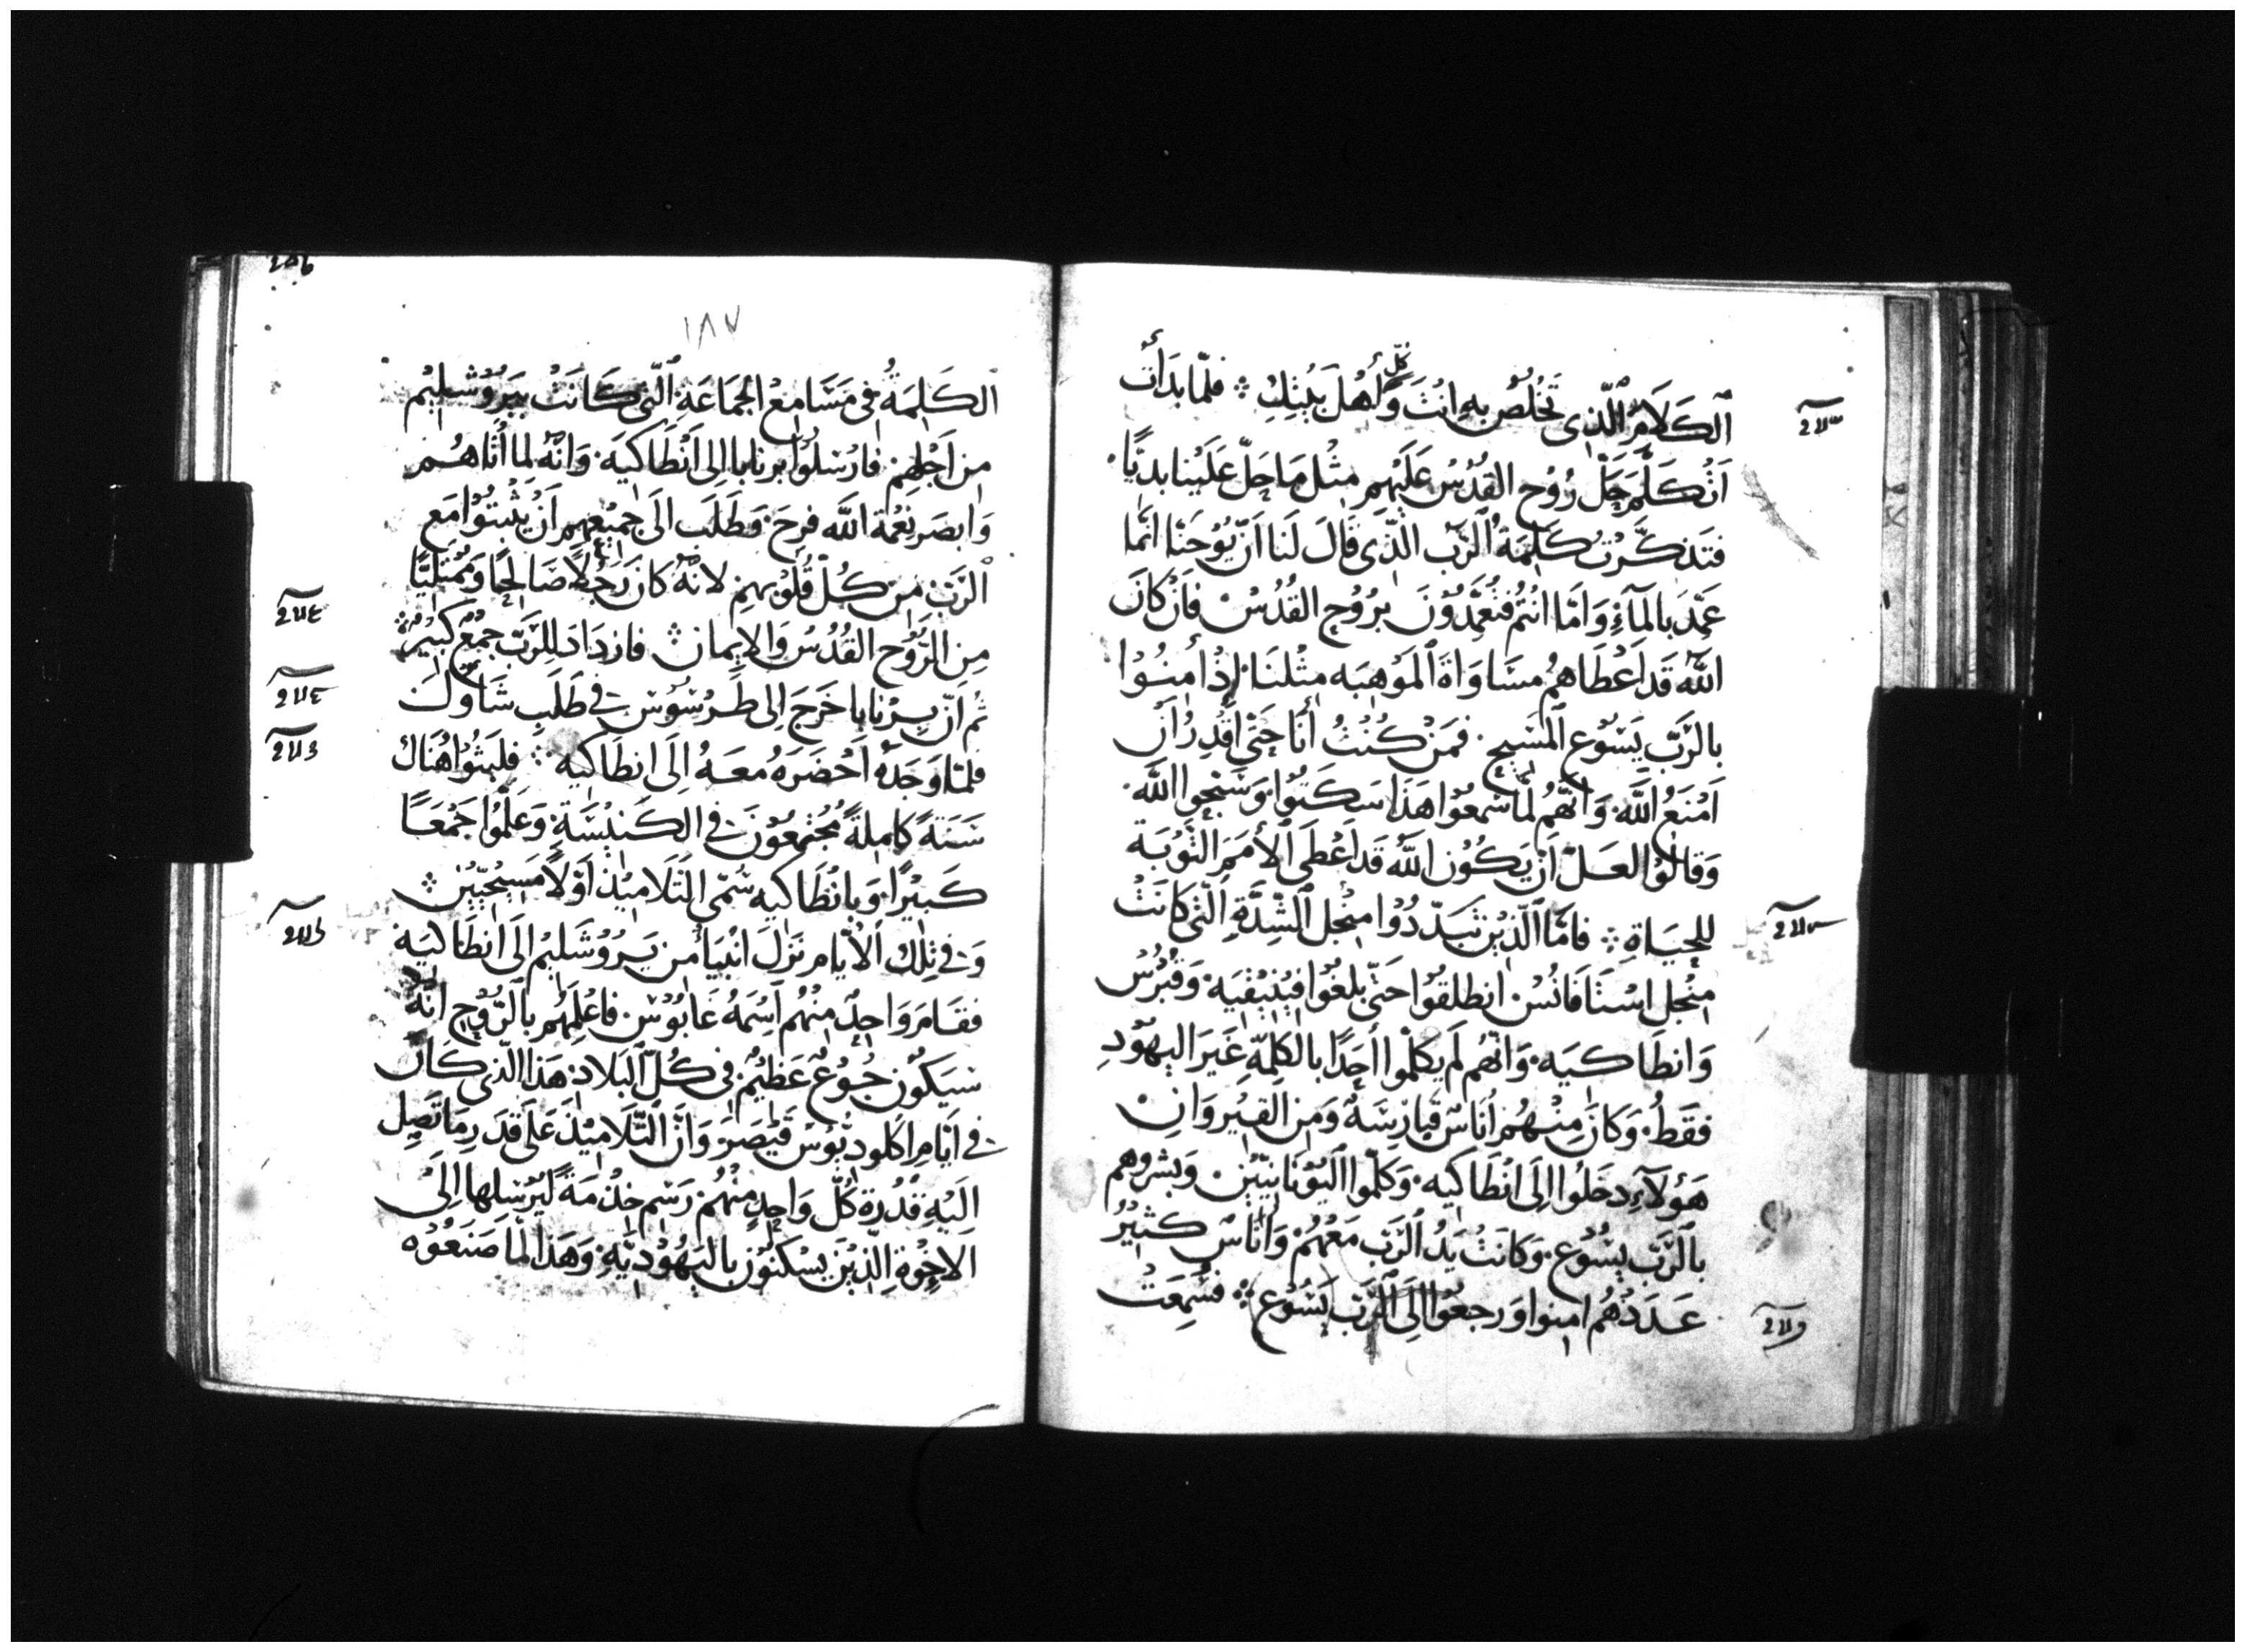 الكَلَامَ الَّذِى تَخْلُصُ بِهِ انْتَ وَكلّ أهْلَ بَيْتِكْ ۞ فلمّا بَدَأْت
اَنْ كَلَّمَ حَلّ رُوْح القُدُسْ عَلَيْهِم مِثْل مَا حَلّ عَلَيْنا بديًّا
فتَذكَّرْتُ كَلِمَةُ الرّبّ الّذِى قَالَ لَنا اَنّ يُوْحَنّا انّما
عَمَّدَ بالمآءِ وَامّا انْتُم فتُعَمَّدُوْنَ برُوْحِ القُدُسْ فاَنْ كَانَ
اللّه قَد اعْطَاهم مسَاوَاةَ المَوْهبَه مثْلنَا إذْ أمنُوْا
بالرّبّ يَسُوْع المَسِيح ٠ فمَنْ كُنْتُ أنَا حَتّى اَقْدِرُ اَن
اَمْنَعُ اللّه ٠ وَانّهُم لَمّا سَمعُوْا هَذا سَكَتُوا وَسَبّحوا اللّه
وَقالُوْا لعَلّ اَنْ يَكُوْن اللّه قَد اعْطَى الأمَمَ التّوْبَة
للحيَاةِ ۞ فامّا الّذِيْنَ تَبَدّدُوْا منْجل الشِّدّةِ الّتى كَانَتْ
منْجل اسْتَافَانُسْ ٠ انطلقُوْا حَتّى بلَغُوْا فيْنِيْقيَه ٠ وَقُبْرُسْ
وَانطَاكيَه ٠ وَانّهُم لَم يكلّموا أحَدًا بالكَلِمَةِ غَيرَ اليهُوْدِ
فقَطْ ٠ وَكانَ مِنْهُم أُنَاسٌ قَبَارِسَةٌ وَمن القيْروَانِ
هَؤلآءِ دخَلُوا إلَى انْطَاكيَه ٠ وَكلّموا اليُوْنَانيّيْن وَبشّروهم
بالرّبّ يسُوْع ٠ وَكانَتْ يَدُ الرّبّ مَعَهُمْ ٠ وَانَاسٌ كثيْرٌ
عَدَدُهُم امنوا وَرجعُوْا الَى الرّبّ يَسُوْع ۞ فسُمِعَتْ
١٨٧
الكَلِمَةُ فِى مَسَامِعْ الجمَاعَة الّتى كَانَتْ بيَرُوْشَلِيْم
من اَجْلهِم ٠ فارْسَلُوْا برنابا الى اَنْطَاكيَه ٠ وَانّهُ لما أتَاهُم
وَابصَر نعْمَة اللّه فرِحَ ٠ وَطَلَب الَى جَميْعهِم اَنْ يثْبتُوْا مَع
الرّبّ منْ كُلّ قُلُوْبهِم لانّهُ كانَ رَجُلاً صَالِحًا وَمُمْتليًا
مِن الرّوْح القُدُسْ وَالايمان ۞ فازدَادَ للرّبّ جَمْعٌ كَبيْرٌ ۞
ثم اَنّ بِرْنَابا خَرَجَ إلى طَرْسُوْس فِى طَلَبِ شَاوُلْ
فلمّا وَجَدَهُ اَحْضَرَهُ مَعَهُ الَى انطَاكيَه ۞ فلَبثُوْا هُنَاك
سَنَةً كَاملَةً مُجْتمعُوْنَ فِى الكَنيْسَةِ ٠ وَعَلّمُوْا جَمْعًا
كَبيْرًا ٠ وَبانْطَاكيَه سُمّى التّلَاميْذ اوّلاً مَسيْحيّيْن ۞
وَفى تِلْك الايّام نزَلَ انْبيَآء من يَرُوْشَليْم الَى انطَاكيَه
فقَامَ وَاحِدٌ منْهُم اسْمهُ غَابُوْس ٠ فاعْلَمَهُم بالرّوْحِ انّهُ
سَيَكُوْن جُوْعٌ عَظيْمٌ فى كُلّ البَلاد ٠ هَذا الّذى كَانَ
فى ايّامِ اكلوديُوسْ قَيْصَرَ وَانّ التّلَاميْذ عَلَى قَدَرِ مَا تَصِل
الَيْهِ قُدْرَة كُلّ وَاحِدٍ منْهُم ٠ رَسَم خدْمَةً ليُرْسلها الَى
الاخْوَة الّذِيْنَ يسْكنُوْن باليَهُوْديّةِ ٠ وَهَذا لمّا صَنَعُوْه